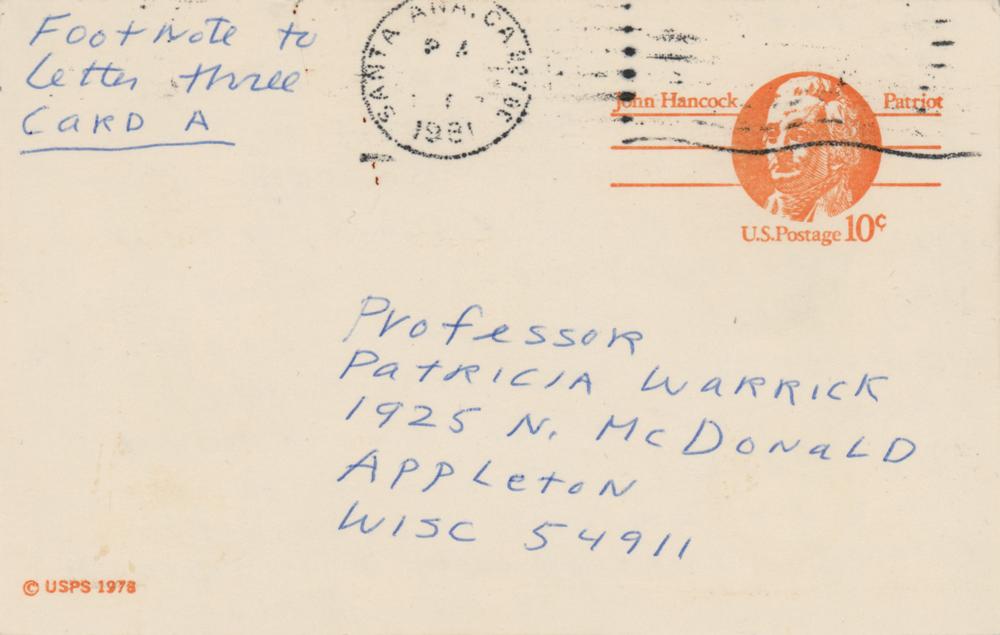 Footnote to
Letter three
CARD A
SANTA ANA, CA
PM
1981
John Hancock
Patriot
U.S.Postage 10¢
Professor
Patricia Warrick
1925 N. McDonald
Appleton
Wisc 54911
© USPS 1978